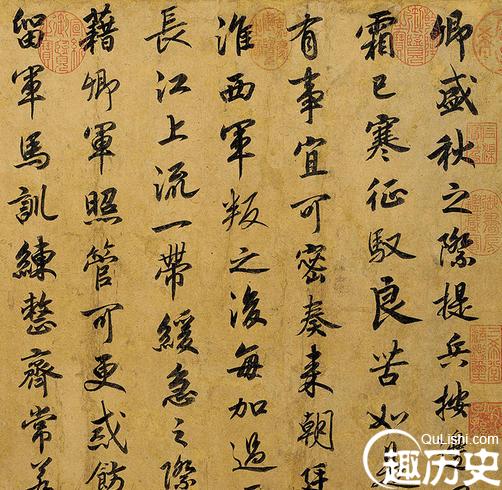 卿盛秋之際提兵按
霜已寒征馭良苦如
有事宜可密奏来朝廷
淮西軍叛之後每加過
長江上流一帶緩急之際
藉卿軍照管可更戒飭
留軍馬訓練整齊常若
QuLishi.com
趣历史